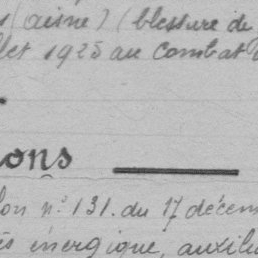 (aisne) (blessure de
llet 1925 au combat
ons
lon n° 131. du 17 décem
ès énergique, auxili